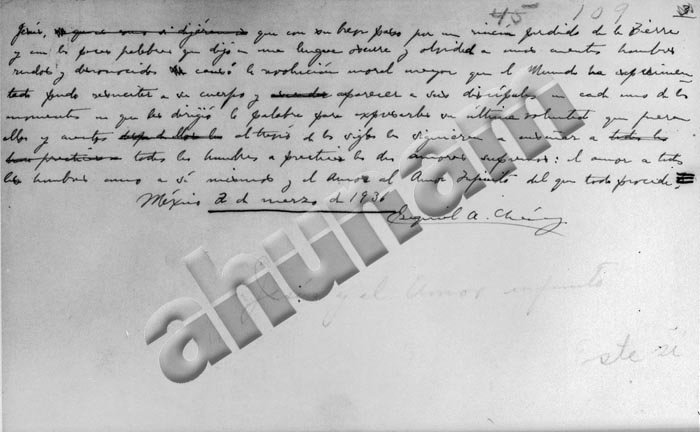 45 109 3
Jesús, que con su breve paso por un rincón perdido de la Tierra
y con las pocas palabras que dijo en una lengua oscura y olvidada a unos cuantos hombres
rudos y desconocidos causó la revolución moral mayor que el Mundo ha experimen
tado pudo resucitar a su cuerpo y aparecer a sus discípulos en cada uno de los
momentos en que les dirigió la palabra para expresarles su última voluntad que fuera
ellos y cuantos al través de los siglos les siguieran enseñar a todos los
todos los hombres a practicar los dos amores supremos: el amor a todos
los hombres como a sí mismos y el Amor al Amor Infinito del que todo procede.
México 2 de marzo de 1936
Ezequiel A. Chávez
Jesús y el Amor infinito
Este sí
ahunam